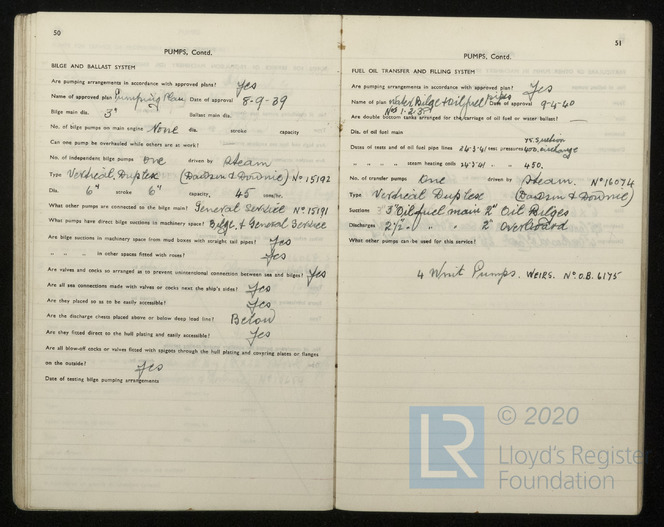 50
PUMPS, Contd.
BILGE AND BALLAST SYSTEM
Are pumping arrangements in accordance with approved plans? Yes
Name of approved plan Pumping Plan Date of approval 8-9-39
Bilge main dia. 3" Ballast main dia.
No. of bilge pumps on main engine None dia. stroke capacity
Can one pump be overhauled while others are at work?
No. of independent bilge pumps one driven by Steam
Type Vertical Duplex (Dawson & Downie) No 15192
Dia. 6" stroke 6" capacity 45 tons/hr.
What other pumps are connected to the bilge main? General Service No 15191
What pumps have direct bilge suctions in machinery space? Bilge & General Service
Are bilge suctions in machinery space from mud boxes with straight tail pipes? Yes
" " " in other spaces fitted with roses? Yes
Are valves and cocks so arranged as to prevent unintentional connection between sea and bilges? Yes
Are all sea connections made with valves or cocks next the ship's sides? Yes
Are they placed so as to be easily accessible? Yes
Are the discharge chests placed above or below deep load line? Below
Are they fitted direct to the hull plating and easily accessible? Yes
Are all blow-off cocks or valves fitted with spigots through the hull plating and covering plates or flanges
on the outside? Yes
Date of testing bilge pumping arrangements
51
PUMPS, Contd.
FUEL OIL TRANSFER AND FILLING SYSTEM
Are pumping arrangements in accordance with approved plan? Yes
Name of plan Water Bilge & Oil fuel Pipes Date of approval 9-4-40
Nos 1-2-3
Are double bottom tanks arranged for the carriage of oil fuel or water ballast? —
Dia. of oil fuel main
75 Suction
Dates of tests and of oil fuel pipe lines 24·3·41 test pressures 400 discharge
" " " steam heating coils 24·3·41 " 450.
No. of transfer pumps One driven by Steam. No 16074
Type Vertical Duplex (Dawson & Downie)
Suctions 3" Oil fuel main 2" Oil Bilges
Discharges 2½" " " 2" Overboard
What other pumps can be used for this service?
4 Unit Pumps. WEIRS. No O.B. 6175
LR
© 2020
Lloyd's Register
Foundation